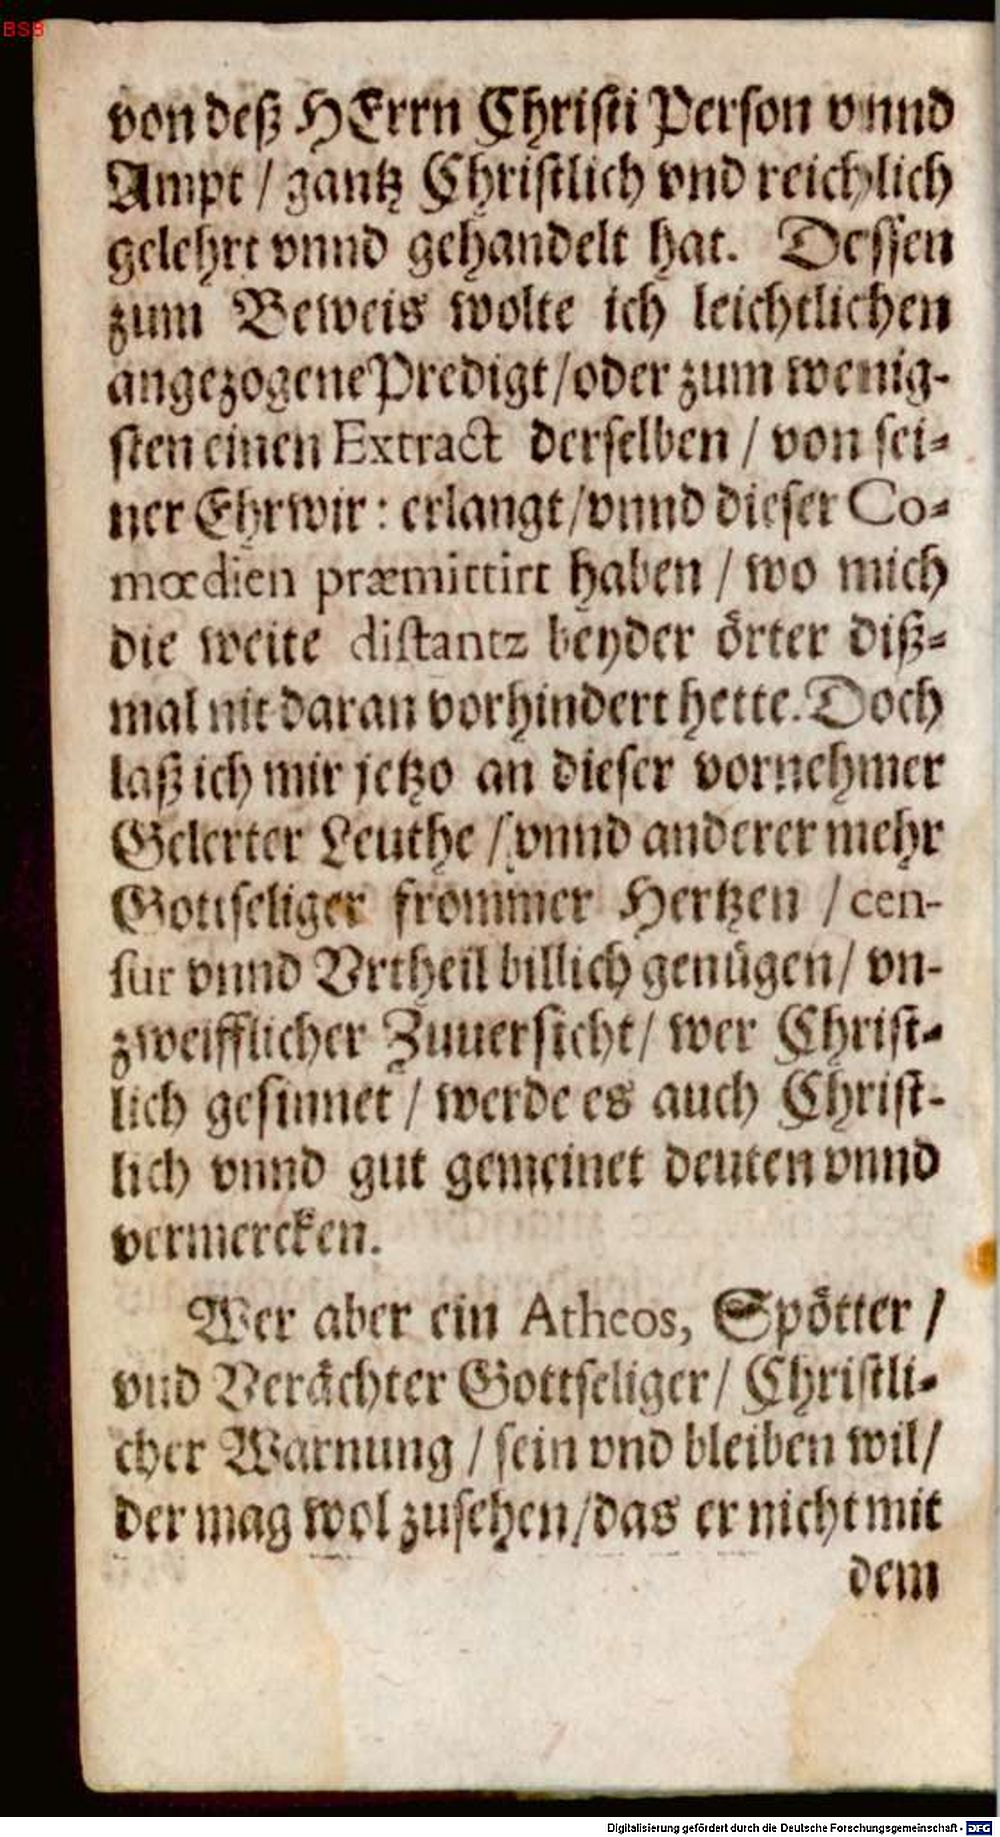 BSB
von deß HErrn Christi Person vnnd
Ampt / gantz Christlich vnd reichlich
gelehrt vnnd gehandelt hat. Dessen
zum Beweis wolte ich leichtlichen
angezogene Predigt / oder zum wenig-
sten einen Extract derselben / von sei-
ner Ehrwir: erlangt / vnnd dieser Co-
mœdien præmittirt haben / wo mich
die weite distantz beyder örter diß-
mal nit daran vorhindert hette. Doch
laß ich mir jetzo an dieser vornehmer
Gelerter Leuthe / vnnd anderer mehr
Gottseliger frommer Hertzen / cen-
sur vnnd Vrtheil billich genügen / vn-
zweifflicher Zuuersicht / wer Christ-
lich gesinnet / werde es auch Christ-
lich vnnd gut gemeinet deuten vnnd
vermercken.
Wer aber ein Atheos, Spötter /
vnd Verächter Gottseliger / Christli-
cher Warnung / sein vnd bleiben wil /
der mag wol zusehen / das er nicht mit
dem
Digitalisierung gefördert durch die Deutsche Forschungsgemeinschaft - DFG